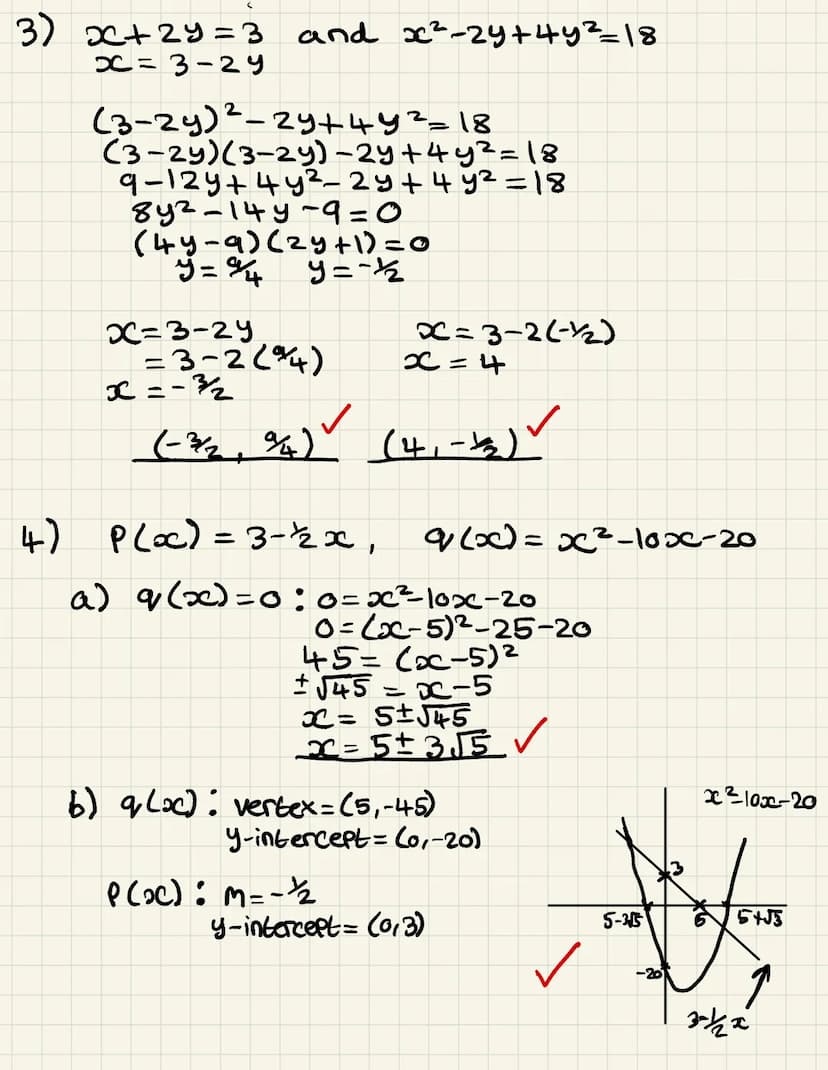 3) x+2y=3 and x²-2y+4y²=18
x=3-2y
(3-2y)²-2y+4y²=18
(3-2y)(3-2y)-2y+4y²=18
9-12y+4y²-2y+4y²=18
8y²-14y-9=0
(4y-9)(2y+1)=0
y=9/4 y=-1/2
x=3-2y x=3-2(-1/2)
=3-2(9/4) x=4
x=-3/2
(-3/2, 9/4) ✓ (4,-1/2) ✓
4) p(x)=3-1/2x, q(x)=x²-10x-20
a) q(x)=0: 0=x²-10x-20
0=(x-5)²-25-20
45=(x-5)²
±√45=x-5
x=5±√45
x=5±3√5 ✓
b) q(x): vertex=(5,-45)
y-intercept=(0,-20)
p(x): m=-1/2
y-intercept=(0,3)
x²-10x-20
3
5-3√5 6 5+√5
-20
3-1/2x
✓